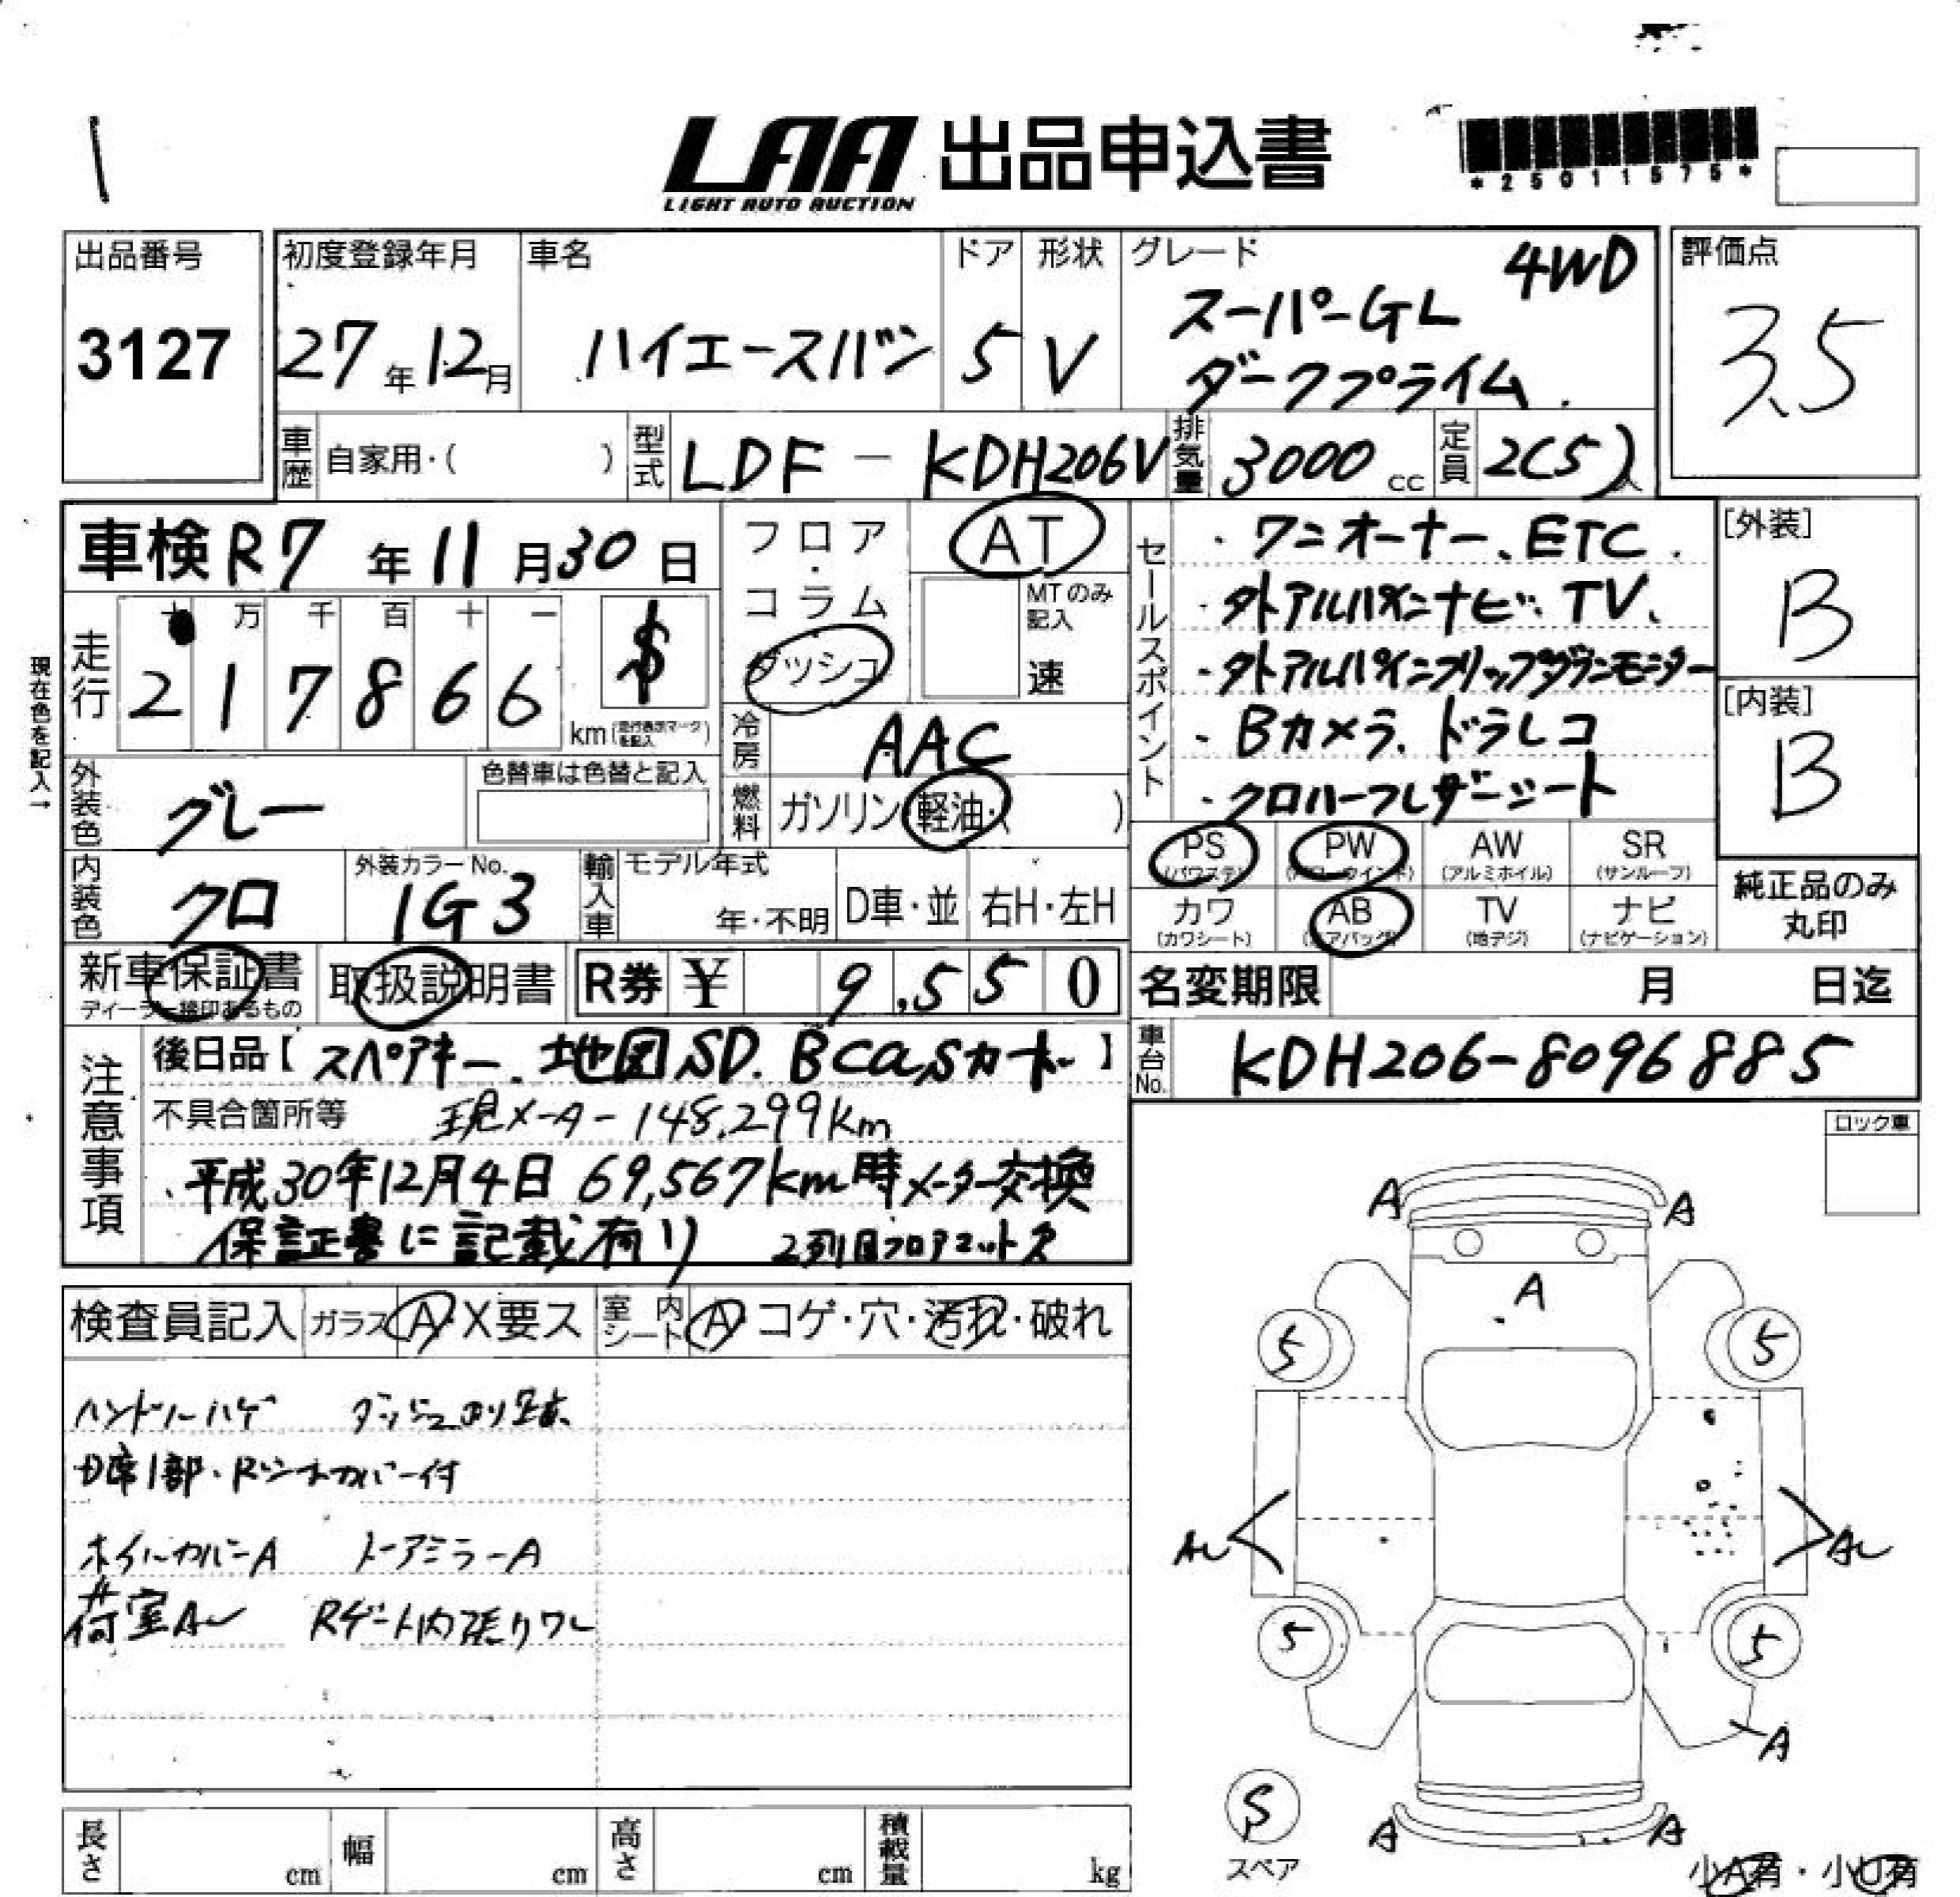 LAA 出品申込書
LIGHT AUTO AUCTION
*25011575*
出品番号
3127
初度登録年月
27年12月
車名
ハイエースバン
ドア
5
形状
V
グレード
4WD
スーパーGL
ダークプライム
評価点
3.5
車歴 自家用・( )
型式 LDF-KDH206V
排気量 3000 cc
定員 2(5)人
車検 R7年11月30日
フロア・コラム・ダッシュ
AT
MTのみ記入
速
走行
十 万 千 百 十 一
2 1 7 8 6 6
$
km(走行表示マークを記入)
現在色を記入→
冷房 AAC
外装色 グレー
色替車は色替と記入
燃料 ガソリン・軽油・( )
内装色 クロ
外装カラーNo.
1G3
輸入車 モデル年式
年・不明
D車・並
右H・左H
セールスポイント
・ワンオーナー、ETC
・外アルパインナビ、TV、
・外アルパインフリップダウンモニター
・Bカメラ、ドラレコ
・クロハーフレザーシート
[外装]
B
[内装]
B
PS (パワステ)
PW (パワーウインド)
AW (アルミホイル)
SR (サンルーフ)
カワ (カワシート)
AB (エアバッグ)
TV (地デジ)
ナビ (ナビゲーション)
純正品のみ
丸印
新車保証書
ディーラー検印あるもの
取扱説明書
R券 ¥ 9,550
名変期限 月 日迄
車台No. KDH206-8096885
注意事項
後日品【スペアキー、地図SD.Bcasカード】
不具合箇所等 現メーター148,299km
、平成30年12月4日 69,567km時メーター交換
保証書に記載有り 2列目フロアマット欠
ロック車
検査員記入
ガラス A・X要ス
室内シート A・コゲ・穴・汚れ・破れ
ハンドルハゲ ダッシュノリ跡
D席1部・Rシートカバー付
ホイルカバーA ドアミラーA
荷室A Rゲート内張りワレ
A A
A
5 5
A A
5 5
A
A A
S
スペア
小A有・小U有
長さ cm
幅 cm
高さ cm
積載量 kg